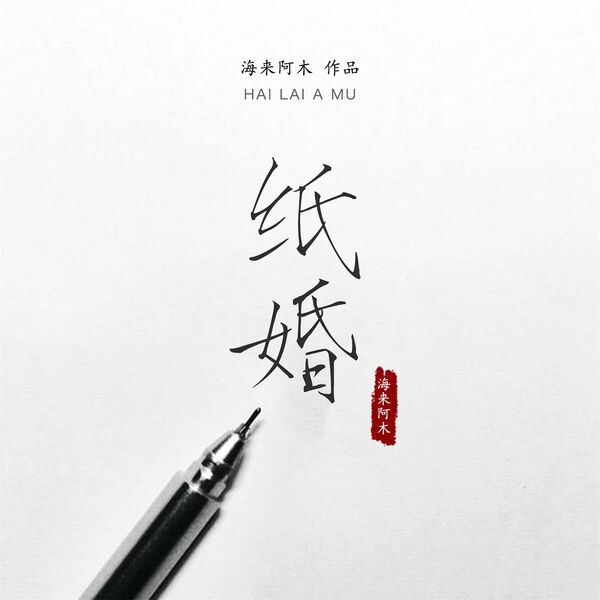 海来阿木 作品
HAI LAI A MU
纸
婚
海来阿木